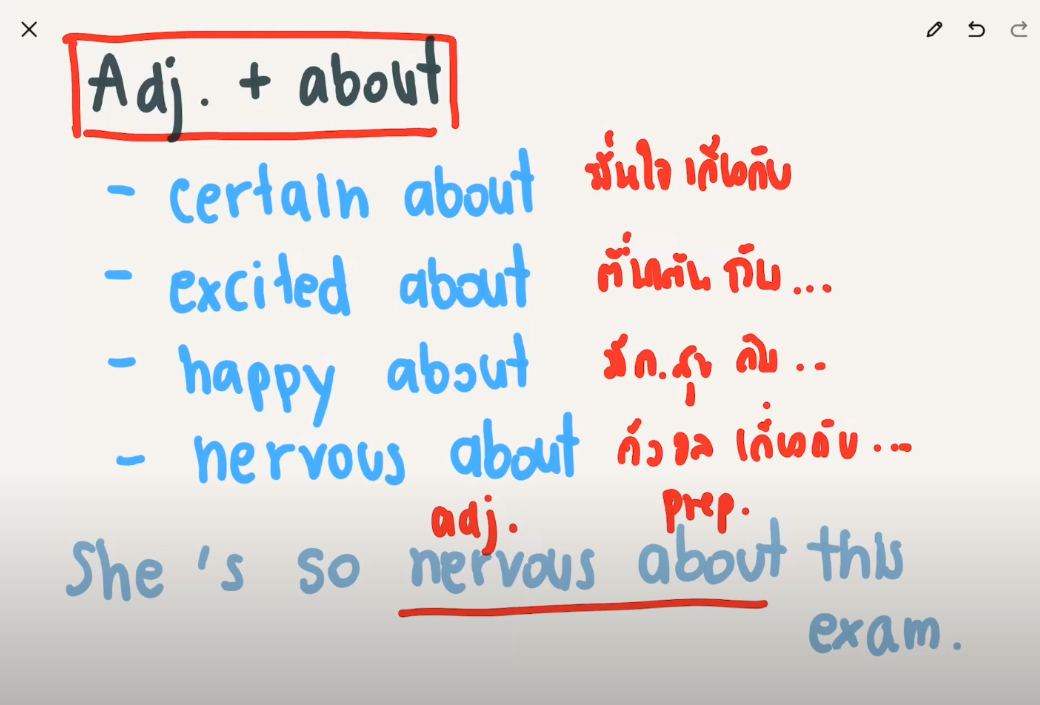 Adj. + about
- certain about มั่นใจ เกี่ยวกับ
- excited about ตื่นเต้น กับ...
- happy about มีค.สุข กับ..
- nervous about กังวล เกี่ยวกับ...
adj. prep.
She's so nervous about this
exam.